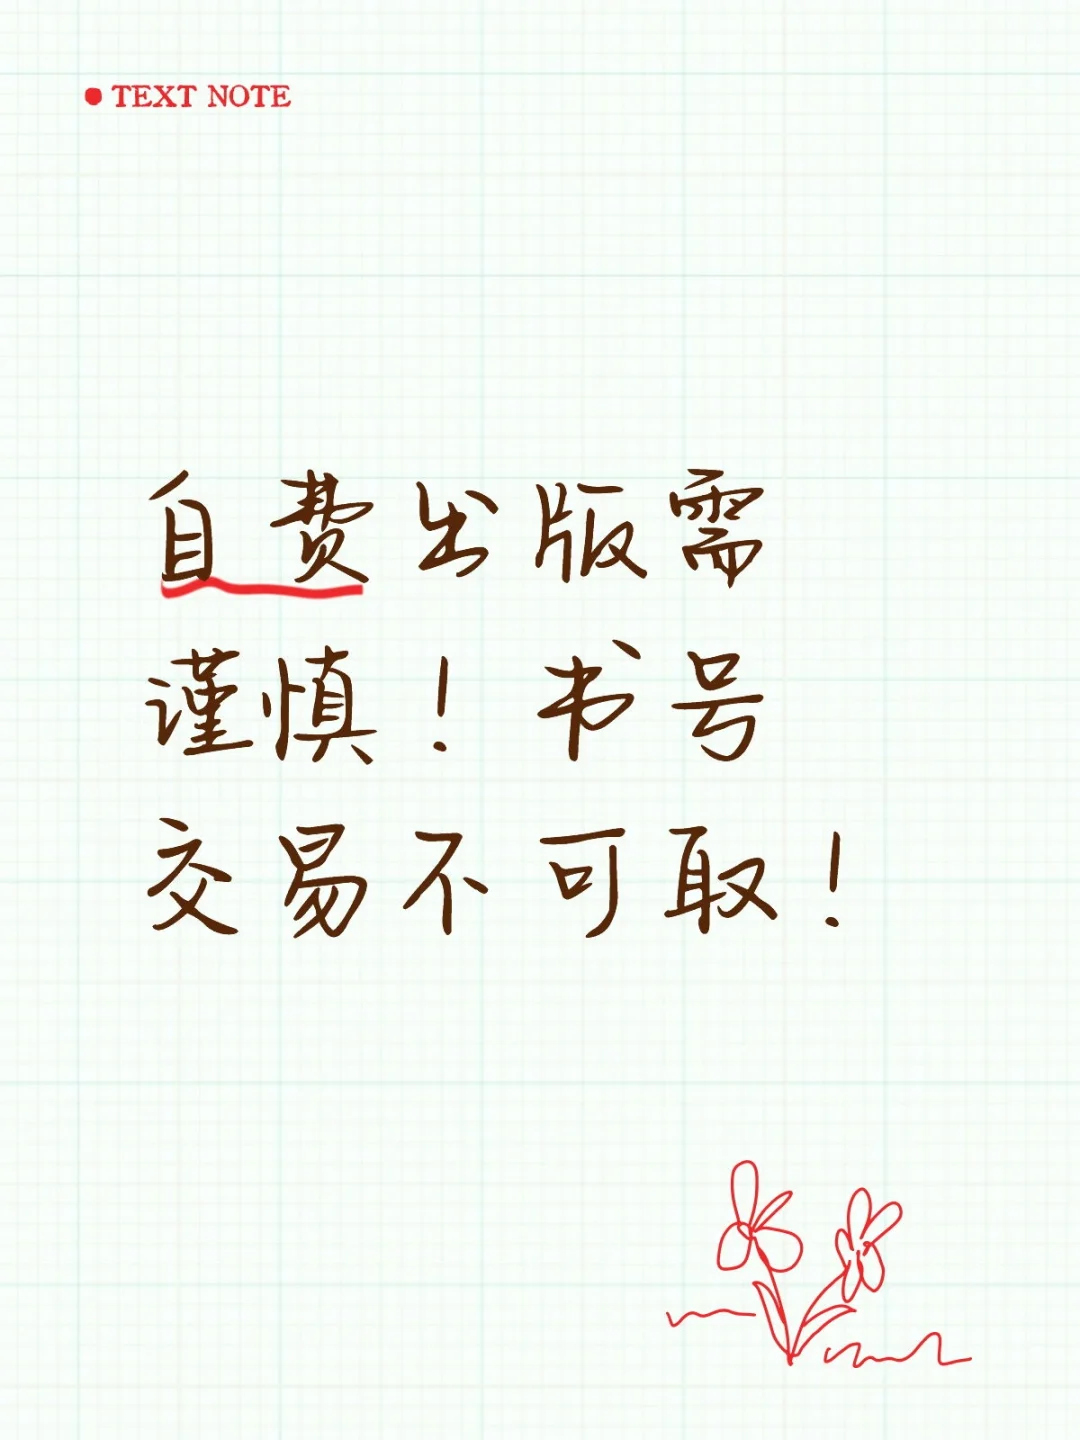 TEXT NOTE
自费出版需
谨慎！书号
交易不可取！